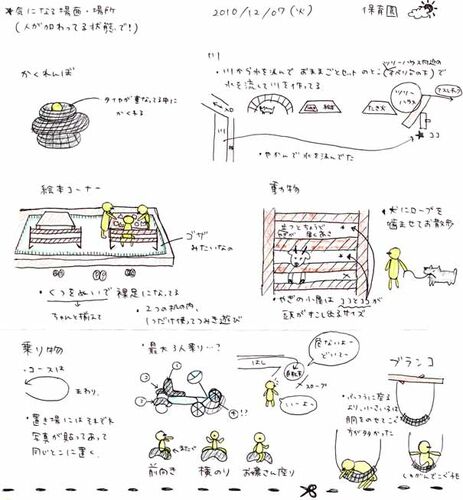 *気になる場面・場所
(人が加わってる状態で!)
2010/12/07(火)
保育園
かくれんぼ
タイヤが重なってる中に
かくれる
川
・川から水を汲んで おままごとセットのとこ
で
水を流して川を作ってる。
ツリー
ハウス
アスレチック
たき火
川
ココ
・やかんで水を汲んでた
絵本コーナー
ゴザ
みたいなの
・くつをぬいで裸足になってる
ちゃんと揃えて
・2つの机の内、
1つだけ使ってつみき遊び
動物
*犬にロープを
噛ませてお散歩
・やぎの小屋はココとココが
頭がすこし出るサイズ
乗り物
・コースは
まわり。
・置き場にはそれぞれ
写真が貼ってあって
同じとこに置く。
・最大3人乗り…?
①
②
③
④!?
前向き
横のり
お嬢さん座り
はし
スロープ
危ないよー
どいてー
いーよー
ブランコ
・ふつうに座る
より、小さい子は
胴をのせてる
方が多かった
しゃがんでこぐ子も